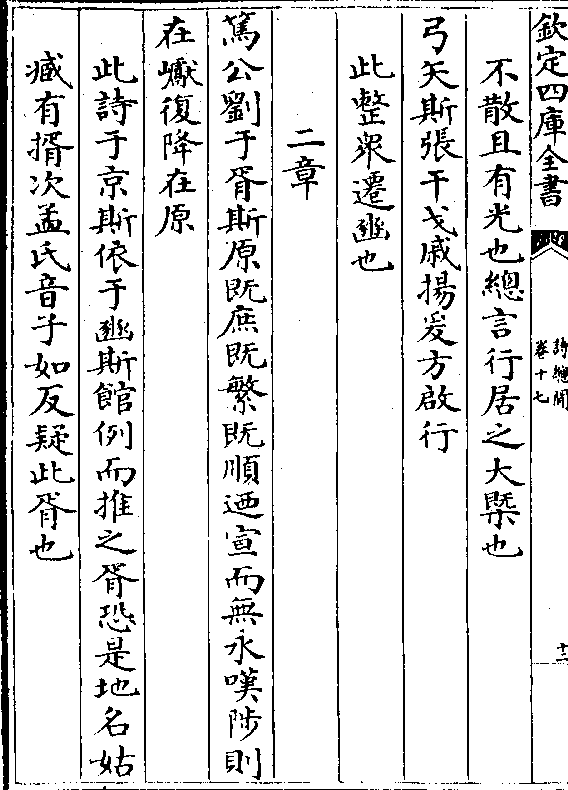 欽定四庫全書
詩總聞
卷十七
十三
不散且有光也總言行居之大槩也
弓矢斯張干戈戚揚爰方啟行
此整眾遷豳也
二章
篤公劉于胥斯原既庶既繁既順迺宣而無永嘆陟則
在巘復降在原
此詩于京斯依于豳斯館例而推之胥恐是地名姑
臧有揟次孟氏音子如反疑此胥也